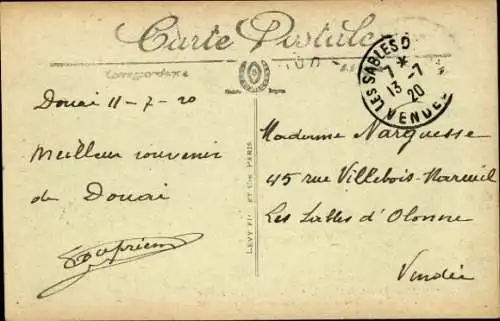 Carte Postale
Correspondance
LES SABLES D
7 *
13 - 7
20
VENDEE
Douai 11-7-20
Meilleur souvenir
de Douai
LEVY FILS ET Cie PARIS
Madame Narquesse
45 rue Villebois-Mareuil
Les Sables d'Olonne
Vendée